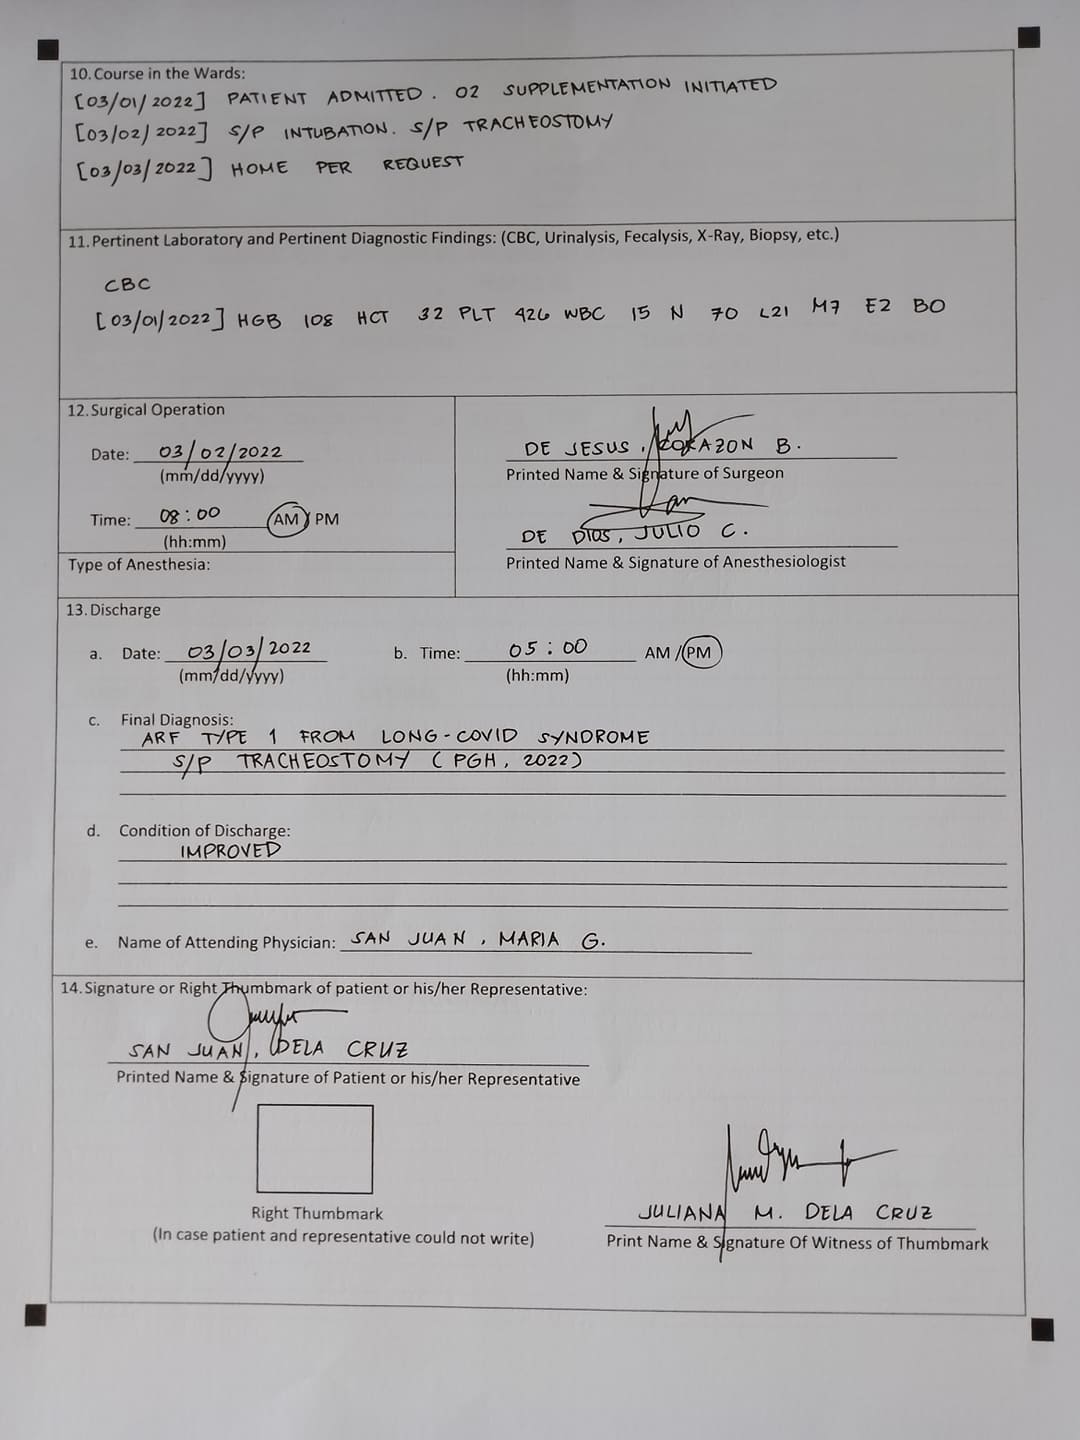 10. Course in the Wards:
[03/01/2022] PATIENT ADMITTED. O2 SUPPLEMENTATION INITIATED
[03/02/2022] S/P INTUBATION. S/P TRACHEOSTOMY
[03/03/2022] HOME PER REQUEST
11. Pertinent Laboratory and Pertinent Diagnostic Findings: (CBC, Urinalysis, Fecalysis, X-Ray, Biopsy, etc.)
CBC
[03/01/2022] HGB 108 HCT 32 PLT 426 WBC 15 N 70 L21 M7 E2 B0
12. Surgical Operation
Date: 03/02/2022
(mm/dd/yyyy)
Time: 08:00 AM / PM
(hh:mm)
Type of Anesthesia:
DE JESUS, CORAZON B.
Printed Name & Signature of Surgeon
DE DIOS, JULIO C.
Printed Name & Signature of Anesthesiologist
13. Discharge
a. Date: 03/03/2022 b. Time: 05:00 AM / PM
(mm/dd/yyyy) (hh:mm)
c. Final Diagnosis:
ARF TYPE 1 FROM LONG-COVID SYNDROME
S/P TRACHEOSTOMY (PGH, 2022)
d. Condition of Discharge:
IMPROVED
e. Name of Attending Physician: SAN JUAN, MARIA G.
14. Signature or Right Thumbmark of patient or his/her Representative:
SAN JUAN, DELA CRUZ
Printed Name & Signature of Patient or his/her Representative
Right Thumbmark
(In case patient and representative could not write)
JULIANA M. DELA CRUZ
Print Name & Signature Of Witness of Thumbmark